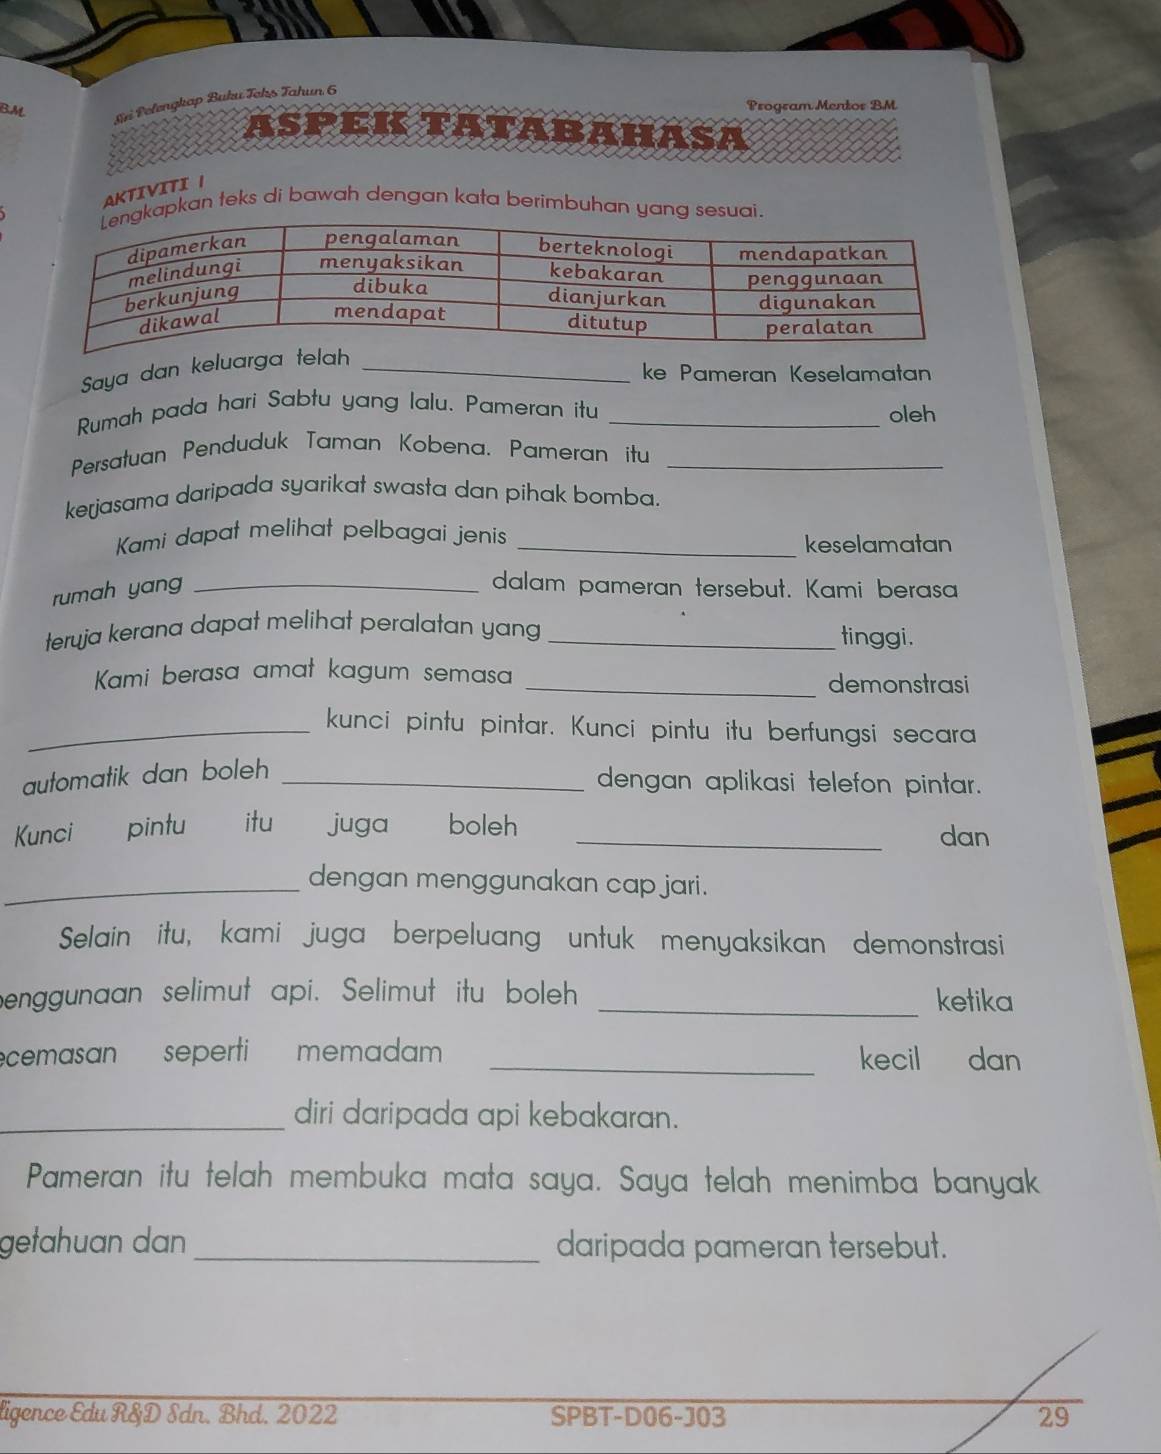 BM
Siri Pelengkap Buku Teks Tahun 6
Program Mentor BM
ASPEK TATABAHASA
AKTIVITI 1
Lengkapkan teks di bawah dengan kata berimbuhan yang sesuai.
dipamerkan pengalaman berteknologi mendapatkan
melindungi menyaksikan kebakaran penggunaan
berkunjung dibuka dianjurkan digunakan
dikawal mendapat ditutup peralatan
Saya dan keluarga telah ____ ke Pameran Keselamatan
Rumah pada hari Sabtu yang lalu. Pameran itu ____ oleh
Persatuan Penduduk Taman Kobena. Pameran itu ____
kerjasama daripada syarikat swasta dan pihak bomba.
Kami dapat melihat pelbagai jenis ____ keselamatan
rumah yang ____ dalam pameran tersebut. Kami berasa
teruja kerana dapat melihat peralatan yang ____ tinggi.
Kami berasa amat kagum semasa ____ demonstrasi
____ kunci pintu pintar. Kunci pintu itu berfungsi secara
automatik dan boleh ____ dengan aplikasi telefon pintar.
Kunci pintu itu juga boleh ____ dan
____ dengan menggunakan cap jari.
Selain itu, kami juga berpeluang untuk menyaksikan demonstrasi
penggunaan selimut api. Selimut itu boleh ____ ketika
ecemasan seperti memadam ____ kecil dan
____ diri daripada api kebakaran.
Pameran itu telah membuka mata saya. Saya telah menimba banyak
getahuan dan ____ daripada pameran tersebut.
ligence Edu R&D Sdn. Bhd. 2022
SPBT-D06-J03
29